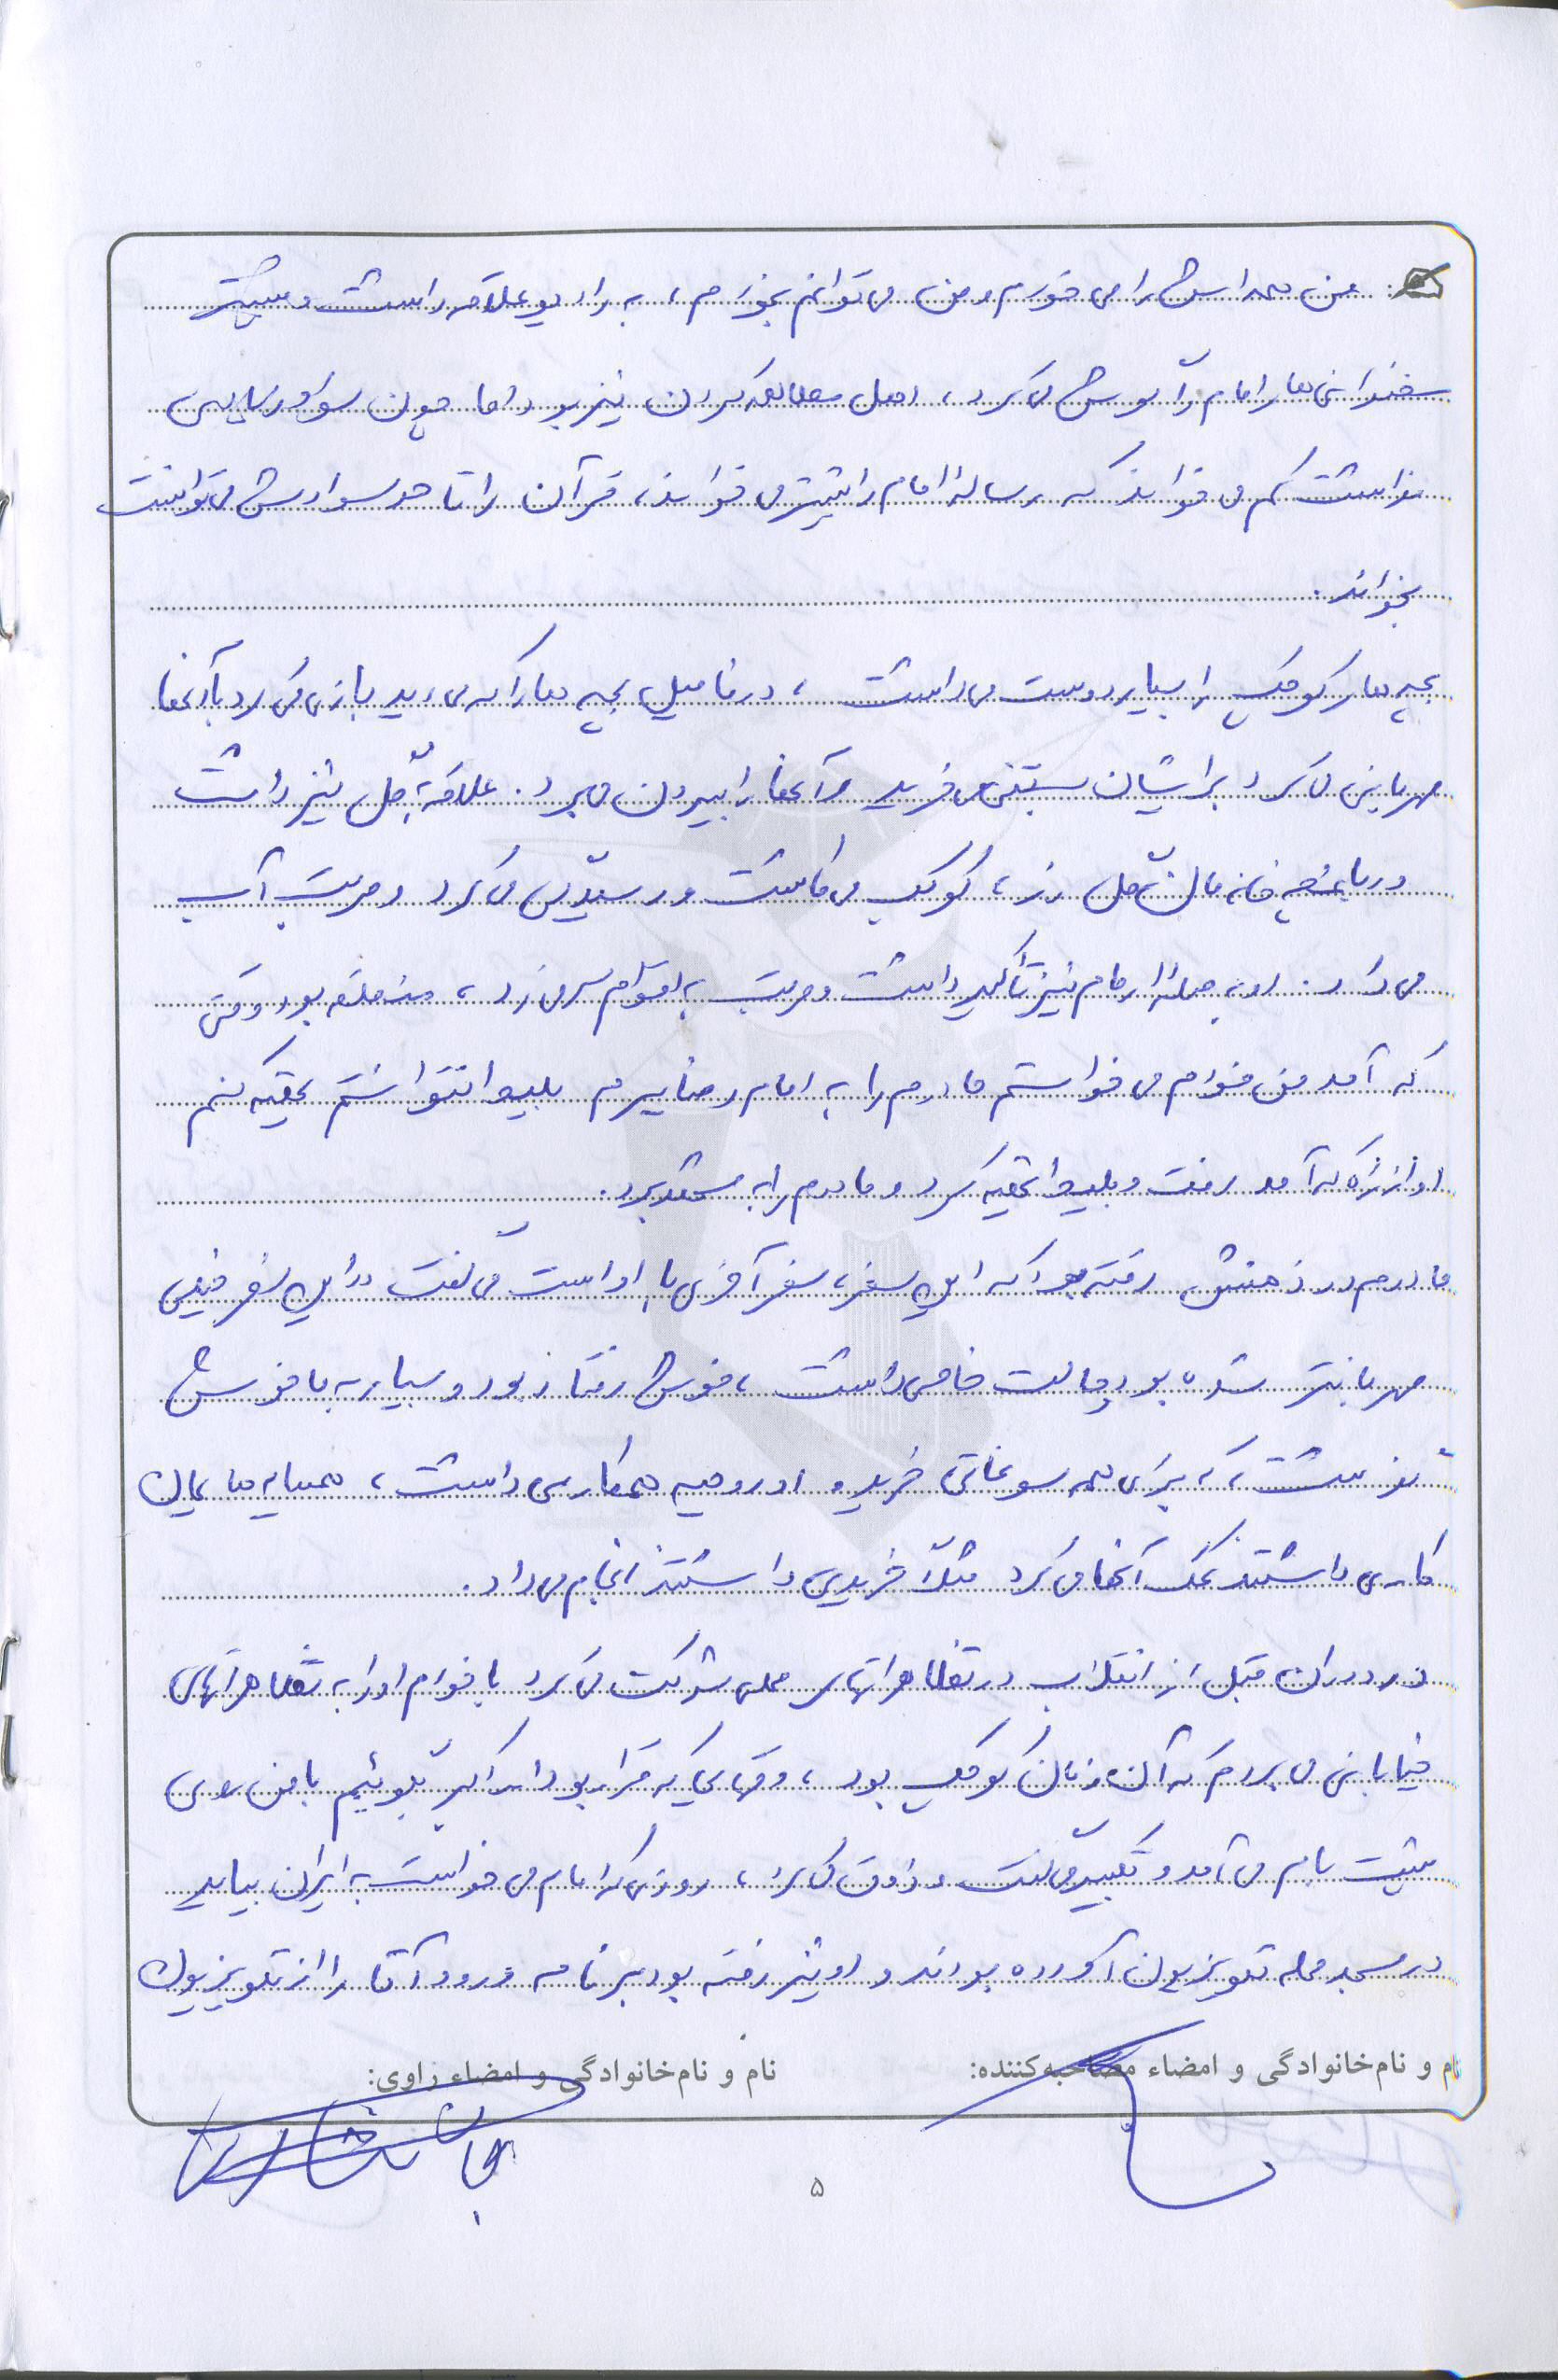 من همه اش را می خورم و من می توانم بخورم، به رادیو علاقه داشت و بیشتر
سخنرانی های امام را گوش می کرد، اهل مطالعه کردن نیز بود اما چون سواد زیادی
نداشت کم می خواند که رساله امام را بیشتر می خواند، قرآن را تا حد سوادش می توانست
بخواند.
بچه های کوچک را بسیار دوست می داشت، در فامیل بچه ها را که می دید بازی می کرد با آنها
مهربانی می کرد برایشان بستنی می خرید و آنها را بیرون می برد. علاقه به گل نیز داشت
در باغچه خانه مان گل رز، کوکب می کاشت و رسیدگی می کرد و مرتب آب
می داد. او به صله ارحام نیز تأکید داشت و مرتب به اقوام سر می زد، منطقه بود وقتی
که آمد من خودم می خواستم مادرم را به امام رضا ببرم بلیط نتوانستم تهیه کنم
او از راه که آمد رفت و بلیط تهیه کرد و مادرم را به مشهد برد.
مادرم در ذهنش رفته بود که این سفر، سفر آخری با او است می گفت در این سفر خیلی
مهربانتر شده بود و حالت خاصی داشت، خوش رفتار بود و بسیار به ما خوش
گذشت، که برای همه سوغاتی خرید و او روحیه همکاری داشت، همسایه هایمان
کاری داشتند کمک آنها می کرد مثلاً خریدی داشتند انجام می داد.
در دوران قبل از انقلاب در تظاهراتهای محلی شرکت می کرد یا خودم او را به تظاهراتهای
خیابانی می بردم که آن زمان کوچک بود، وقتهایی که قرار بود الله اکبر بگوئیم با من روی
پشت بام می آمد و تکبیر می گفت و ذوق می کرد، روزی که امام می خواست به ایران بیاید
در مسجد محله تلویزیون آورده بودند و او نیز رفته بود برنامه ورود آقا را از تلویزیون
نام و نام‌خانوادگی و امضاء مصاحبه‌کننده: نام و نام‌خانوادگی و امضاء راوی:
۵